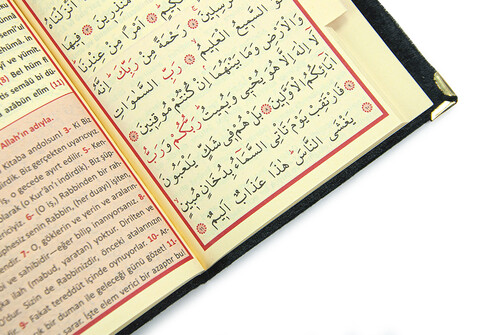 مُنْذِرِينَ فِيهَا
اَمْرًا مِنْ عِنْدِنَا
مُرْسِلِينَ رَحْمَةً مِنْ رَبِّكَ اِنَّهُ
هُوَ السَّمِيعُ الْعَلِيمُ رَبِّ السَّمٰوَاتِ
وَالْاَرْضِ وَمَا بَيْنَهُمَا اِنْ كُنْتُمْ مُوقِنِينَ
لَا اِلٰهَ اِلَّا هُوَ يُحْيِي وَيُمِيتُ رَبُّكُمْ وَرَبُّ
اٰبَائِكُمُ الْاَوَّلِينَ بَلْ هُمْ فِي شَكٍّ يَلْعَبُونَ
فَارْتَقِبْ يَوْمَ تَأْتِي السَّمَاءُ بِدُخَانٍ مُبِينٍ
يَغْشَى النَّاسَ هٰذَا عَذَابٌ اَلِيمٌ
yî ve yümît,
Bel hüm fî
tis semâü bi dü-
azâbün elîm (11)
Allah'ın adıyla.
Kitaba andolsun! 3- Ki Biz
dirdik. Biz gerçekten uyarıcıyız.
iş, o gecede ayırt edilir. 5- Ken-
olarak (o Kur'an'ı) indirdik. Biz şüp-
ericiyiz. 6- O (iş) Rabbinden bir rah-
üphesiz senin Rabbin, (her duayı) işiten-
lendir. 7- O, göklerin ve yerin ve araların-
bi ve sahibidir—eğer bilip inanıyorsanız. 8-
ka ilah (mabud, yaratan) yoktur. Diriltir ve
dur. Sizin de Rabbinizdir, önceki atalarınızın
9- Fakat tereddüt içinde oynuyorlar. 10- Ar-
bir duman ile geleceği günü gözet! 11-
sarar. İşte elem verici bir azaptır bu!